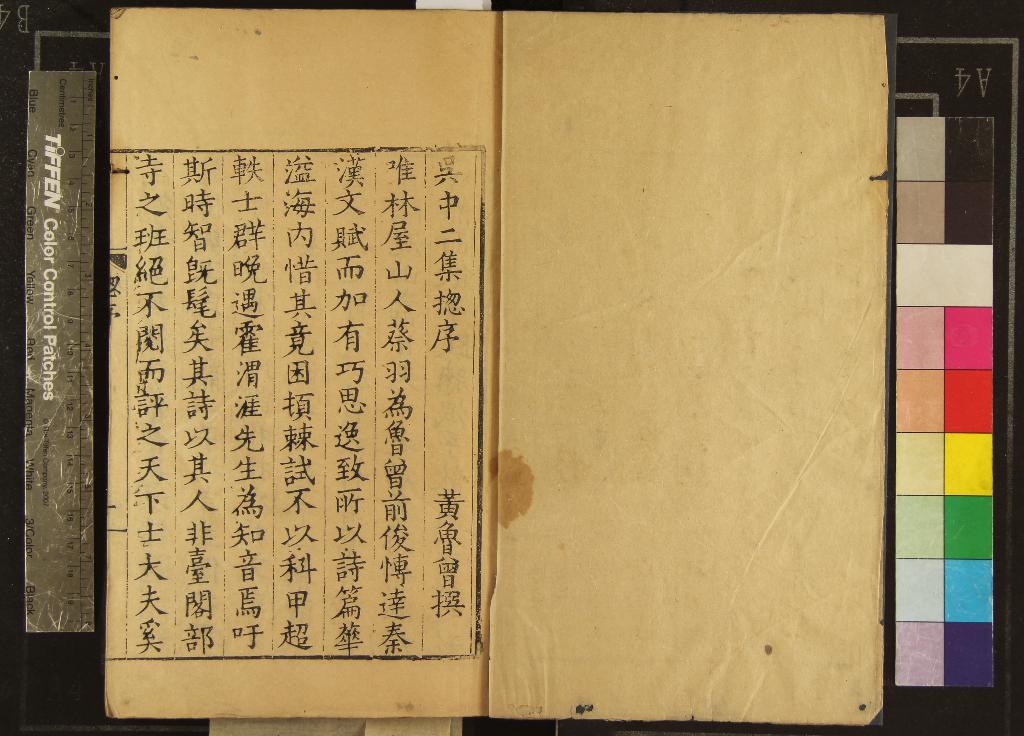 吳中二集捴序
黃魯曾撰
唯林屋山人蔡羽為魯曾前俊愽達秦
漢文賦而加有巧思逸致所以詩篇華
溢海内惜其竟困頓棘試不以科甲超
軼士群晚遇霍渭涯先生為知音焉吁
斯時智旣髦矣其詩以其人非臺閣部
寺之班絕不閱而評之天下士大夫奚
捴序
一
TIFFEN Color Control Patches
Inches
Centimetres
Blue
Cyan
Green
Yellow
Red
Magenta
White
3/Color
Black
A4
B4